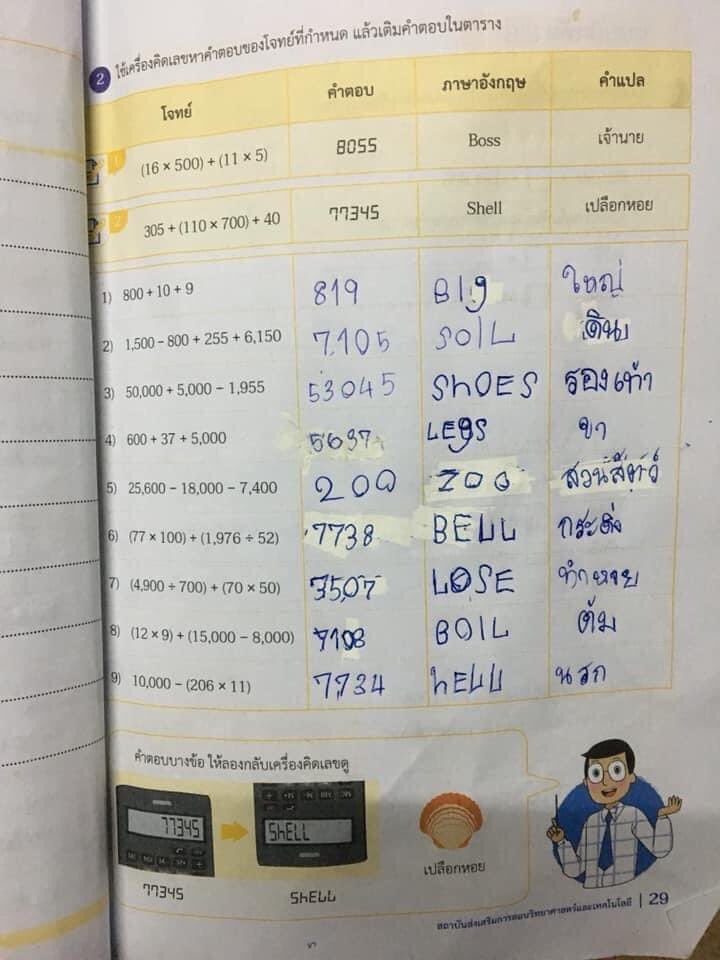 2 ใช้เครื่องคิดเลขหาคำตอบของโจทย์ที่กำหนด แล้วเติมคำตอบในตาราง
โจทย์ คำตอบ ภาษาอังกฤษ คำแปล
1 (16 × 500) + (11 × 5) 8055 Boss เจ้านาย
2 305 + (110 × 700) + 40 77345 Shell เปลือกหอย
1) 800 + 10 + 9 819 BIg ใหญ่
2) 1,500 – 800 + 255 + 6,150 7,105 SOIL ดิน
3) 50,000 + 5,000 – 1,955 53045 ShOES รองเท้า
4) 600 + 37 + 5,000 5637 LEgS ขา
5) 25,600 – 18,000 – 7,400 200 ZOO สวนสัตว์
6) (77 × 100) + (1,976 ÷ 52) 7738 BELL กระดิ่ง
7) (4,900 ÷ 700) + (70 × 50) 3507 LOSE ทำหาย
8) (12 × 9) + (15,000 – 8,000) 7108 BOIL ต้ม
9) 10,000 – (206 × 11) 7734 hELL นรก
คำตอบบางข้อ ให้ลองกลับเครื่องคิดเลขดู
77345 ShELL
เปลือกหอย
77345 ShELL
สถาบันส่งเสริมการสอนวิทยาศาสตร์และเทคโนโลยี | 29